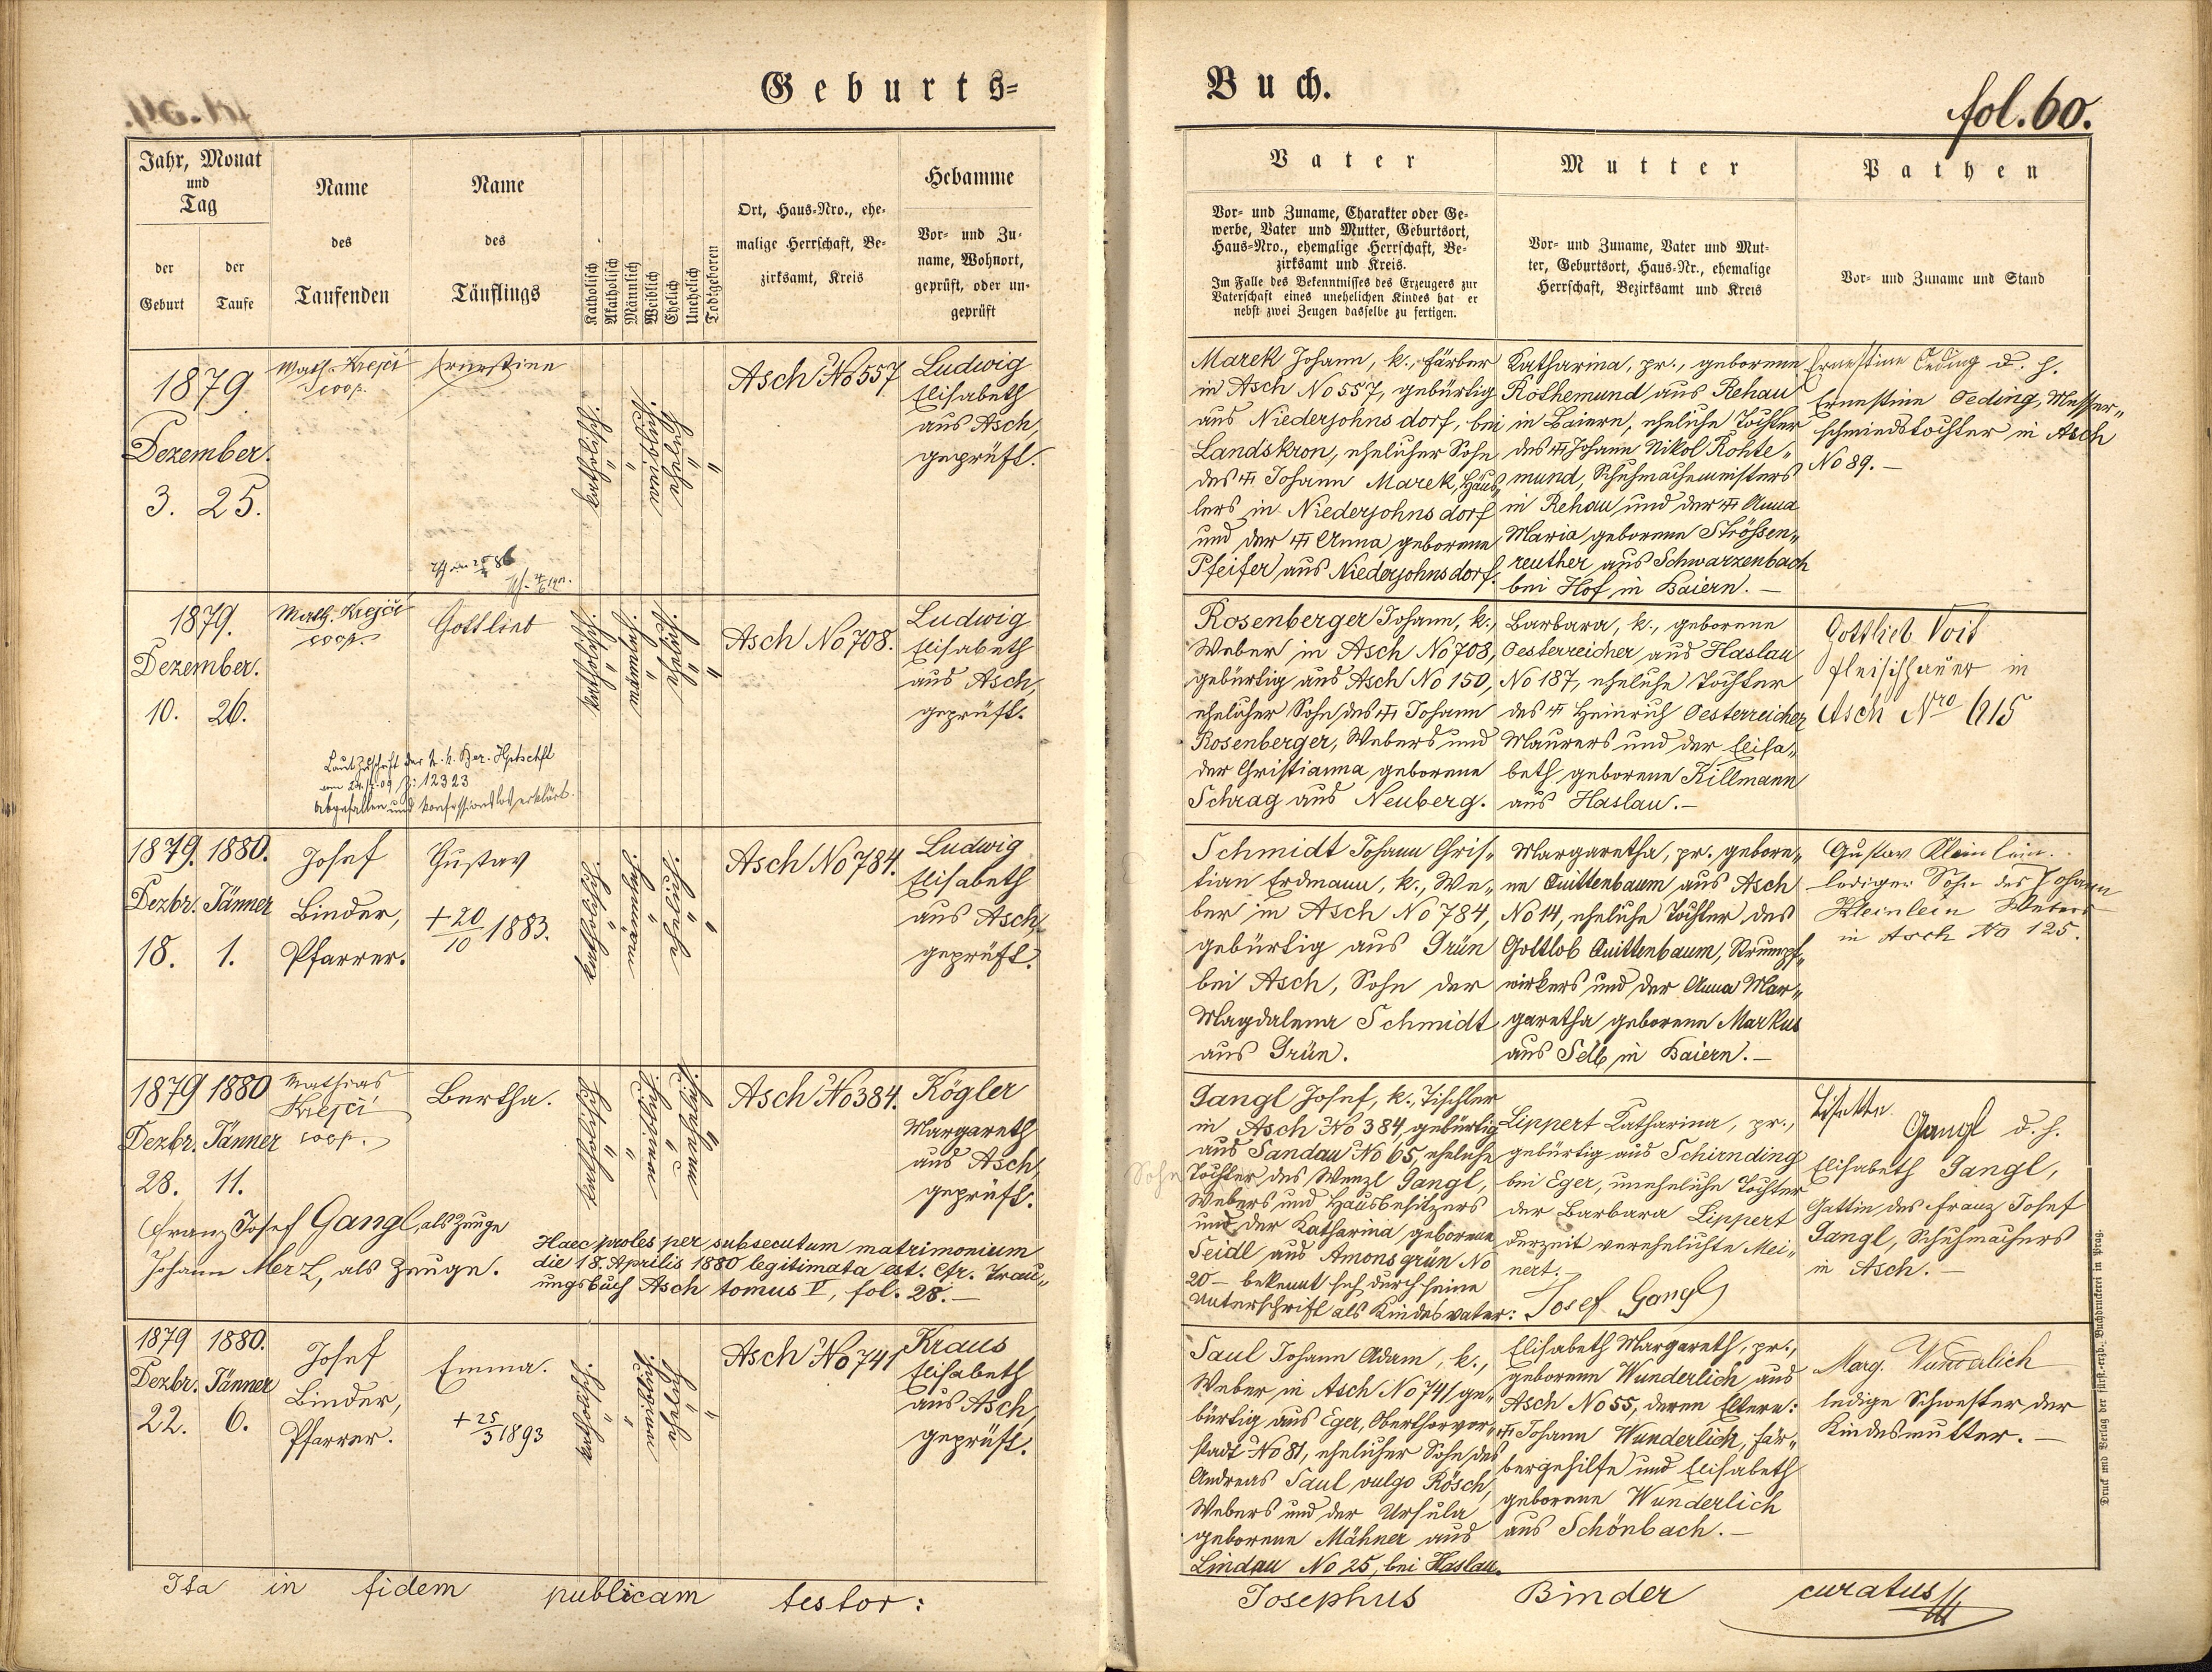 Geburts=
Buch.
fol. 60.
Jahr, Monat
und
Tag
der
Geburt
der
Taufe
Name
des
Taufenden
Name
des
Täuflings
Katholisch
Akatholisch
Männlich
Weiblich
Ehelich
Unehelich
Todtgeboren
Ort, Haus-Nro., ehe-
malige Herrschaft, Be-
zirksamt, Kreis
Hebamme
Vor- und Zu-
name, Wohnort,
geprüft, oder un-
geprüft
Vater
Vor- und Zuname, Charakter oder Ge-
werbe, Vater und Mutter, Geburtsort,
Haus-Nro., ehemalige Herrschaft, Be-
zirksamt und Kreis.
Im Falle des Bekenntnisses des Erzeugers zur
Vaterschaft eines unehelichen Kindes hat er
nebst zwei Zeugen dasselbe zu fertigen.
Mutter
Vor- und Zuname, Vater und Mut-
ter, Geburtsort, Haus-Nr., ehemalige
Herrschaft, Bezirksamt und Kreis
Pathen
Vor- und Zuname und Stand
1879
Dezember.
3. 25.
Math. Krejčí
coop.
Ernestine
katholisch
weiblich
ehelich
Asch No 557
Ludwig
Elisabeth
aus Asch,
geprüft.
Marek Johann, k., Färber
in Asch No 557, gebürtig
aus Niederjohnsdorf, bei
Landskron, ehelicher Sohn
des Johann Marek, Häus„
lers in Niederjohnsdorf
und der Anna geborene
Pfeifer aus Niederjohnsdorf.
Katharina, pr., geborene
Rothemund aus Rehau
in Baiern, eheliche Tochter
des Johann Nikol Rohte„
mund, Schuhmachermeisters
in Rehau und der Anna
Maria geborene Strössen„
reuther aus Schwarzenbach
bei Hof in Baiern. —
Ernestine Oeding d. h.
Ernestine Oeding, Messer„
schmiedstochter in Asch
No 89. —
1879.
Dezember.
10. 26.
Math. Krejčí
coop.
Gottlieb
Laut Zuschrift der k. k. Bez. Hptschft
Z: 12323
Abgefallen und konfessionslos erklärt.
katholisch
männlich
ehelich
Asch No 708.
Ludwig
Elisabeth
aus Asch,
geprüft.
Rosenberger Johann, k.,
Weber in Asch No 708,
gebürtig aus Asch No 150,
ehelicher Sohn des Johann
Rosenberger, Webers und
der Christianna geborene
Schrag aus Neuberg.
Barbara, k., geborene
Oesterreicher aus Haslau
No 187, eheliche Tochter
des Heinrich Oesterreicher
Maurers und der Elisa„
beth geborene Killmann
aus Haslau. —
Gottlieb Voit
Fleischhauer in
Asch Nro 615
1879. 1880.
Dezbr. Jänner
18. 1.
Josef
Binder,
Pfarrer.
Gustav
+ 20/10 1883.
katholisch
männlich
ehelich
Asch No 784.
Ludwig
Elisabeth
aus Asch,
geprüft.
Schmidt Johann Chris„
tian Erdmann, k., We„
ber in Asch No 784,
gebürtig aus Grün
bei Asch, Sohn der
Magdalena Schmidt
aus Grün.
Margaretha, pr. gebore„
ne Quittenbaum aus Asch
No 14, eheliche Tochter des
Gottlob Quittenbaum, Strumpf„
wirkers und der Anna Mar„
garetha geborene Markus
aus Selb in Baiern. —
Gustav Kleinlein.
lediger Sohn des Johann
Kleinlein Webers
in Asch No 125.
1879 1880
Dezbr. Jänner
28. 11.
Mathias
Krejčí
coop.
Bertha.
katholisch
weiblich
unehelich
Asch No 384.
Kögler
Margareth
aus Asch,
geprüft.
Franz Josef Gangl, als Zeuge
Johann Merz, als Zeuge.
Haec proles per subsecutum matrimonium
die 18. Aprilis 1880 legitimata est. Cfr. Trau„
ungsbuch Asch tomus V, fol. 28. —
Gangl Josef, k., Tischler
in Asch No 384, gebürtig
aus Sandau No 65, eheliche
Sohn Tochter des Wenzl Gangl,
Webers und Hausbesitzers
und der Katharina geborene
Seidl aus Amonsgrün No
20 – bekennt sich durch seine
Unterschrift als Kindesvater:
Josef Gangl
Lippert Katharina, pr.,
gebürtig aus Schirnding
bei Eger, uneheliche Tochter
der Barbara Lippert
derzeit verehelichte Mei„
nert. —
Lisette
Gangl d. h.
Elisabeth Gangl,
Gattin des Franz Josef
Gangl, Schuhmachers
in Asch. —
1879 1880.
Dezbr. Jänner
22. 6.
Josef
Binder,
Pfarrer.
Emma.
+ 25/3 1893
katholisch
weiblich
ehelich
Asch No 741
Kraus
Elisabeth
aus Asch,
geprüft.
Saul Johann Adam, k.,
Weber in Asch No 741 ge„
bürtig aus Eger, Oberthorvor„
stadt No 81, ehelicher Sohn des
Andreas Saul vulgo Rösch,
Webers und der Ursula
geborene Mähner aus
Lindau No 25, bei Haslau.
Elisabeth Margareth, pr.,
geborene Wunderlich aus
Asch No 55, deren Eltern:
Johann Wunderlich, Fär„
bergehilfe und Elisabeth
geborene Wunderlich
aus Schönbach. —
Marg. Wunderlich
ledige Schwester der
Kindesmutter. —
Druck und Verlag der fürst.-erzb. Buchdruckerei in Prag.
Ita in fidem publicam testor:
Josephus Binder curatus